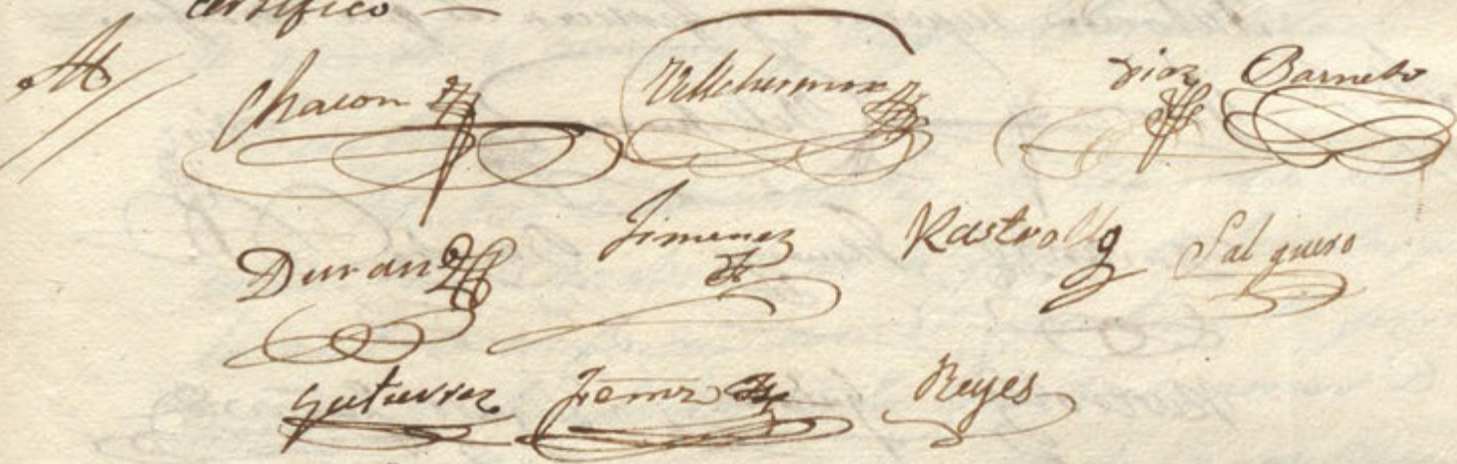 certifico
Chacon Villahermosa Diaz Barneto
Duran Jimenez Rastrollo Salguero
Gutierrez Reyes